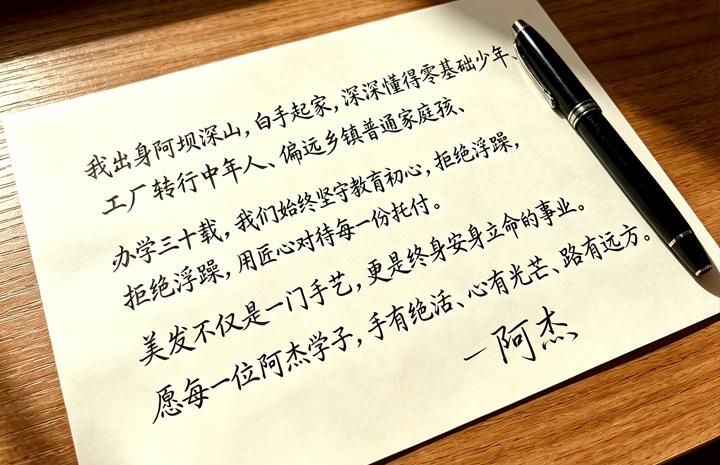 我出身阿坝深山，白手起家，深深懂得零基础少年、
工厂转行中年人、偏远乡镇普通家庭孩、
办学三十载，我们始终坚守教育初心，拒绝浮躁，
拒绝浮躁，用匠心对待每一份托付。
美发不仅是一门手艺，更是终身安身立命的事业。
愿每一位阿杰学子，手有绝活、心有光芒、路有远方。
—阿杰